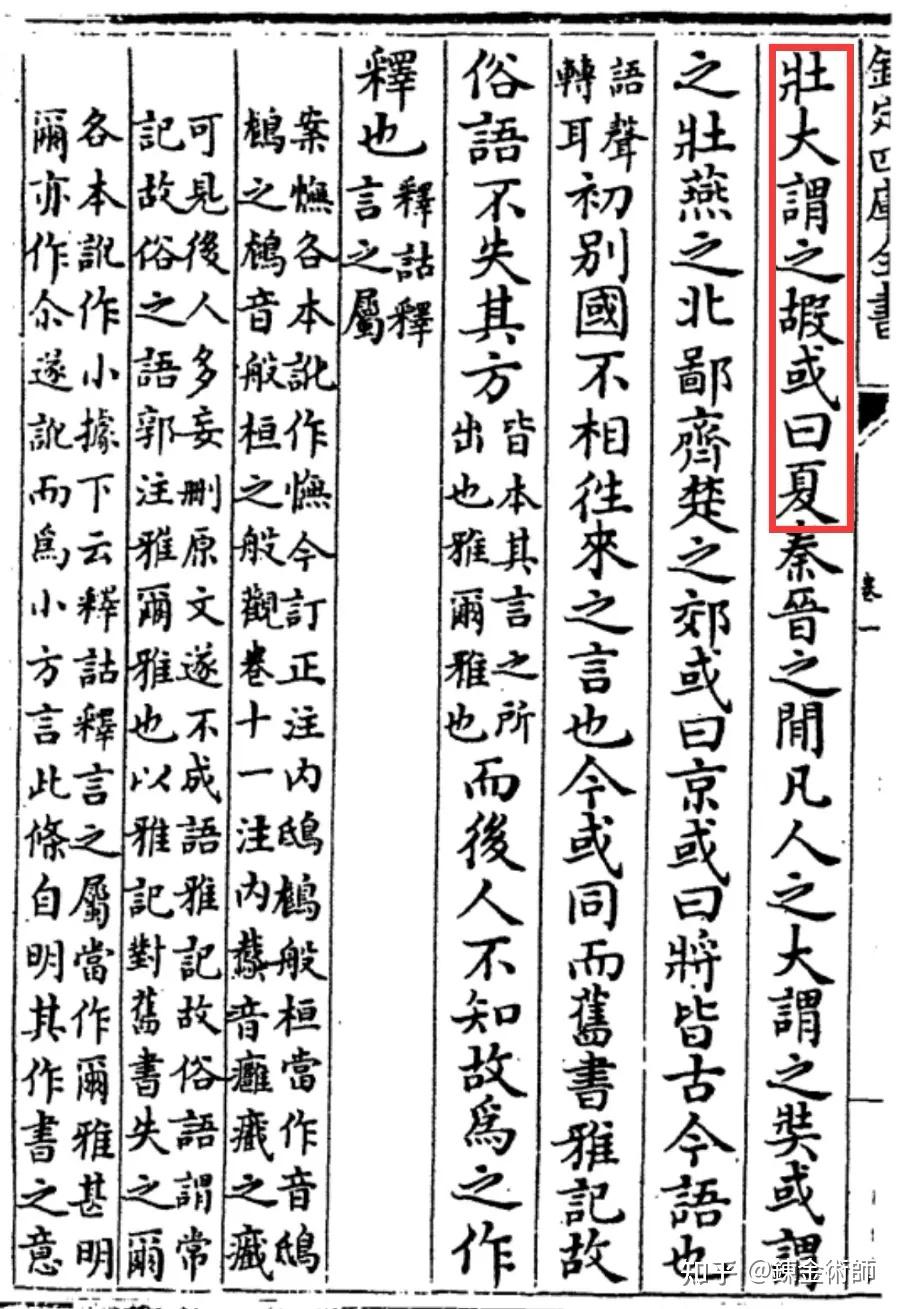 欽定四庫全書
卷一
壯大謂之嘏或曰夏秦晉之閒凡人之大謂之奘或謂
之壯燕之北鄙齊楚之郊或曰京或曰將皆古今語也
語聲
轉耳
初別國不相徃來之言也今或同而舊書雅記故
俗語不失其方
皆本其言之所
出也雅爾雅也
而後人不知故爲之作
釋也
釋詁釋
言之屬
案憮各本訛作憮今訂正注内鴟鵂般桓當作音鴟
鵂之鵂音般桓之般觀卷十一注内蠀音癰癤之癤
可見後人多妄刪原文遂不成語雅記故俗語謂常
記故俗之語郭注雅爾雅也以雅記對舊書失之爾
各本訛作小據下云釋詁釋言之屬當作爾雅甚明
爾亦作尒遂訛而爲小方言此條自明其作書之意
知乎 @鍊金術師